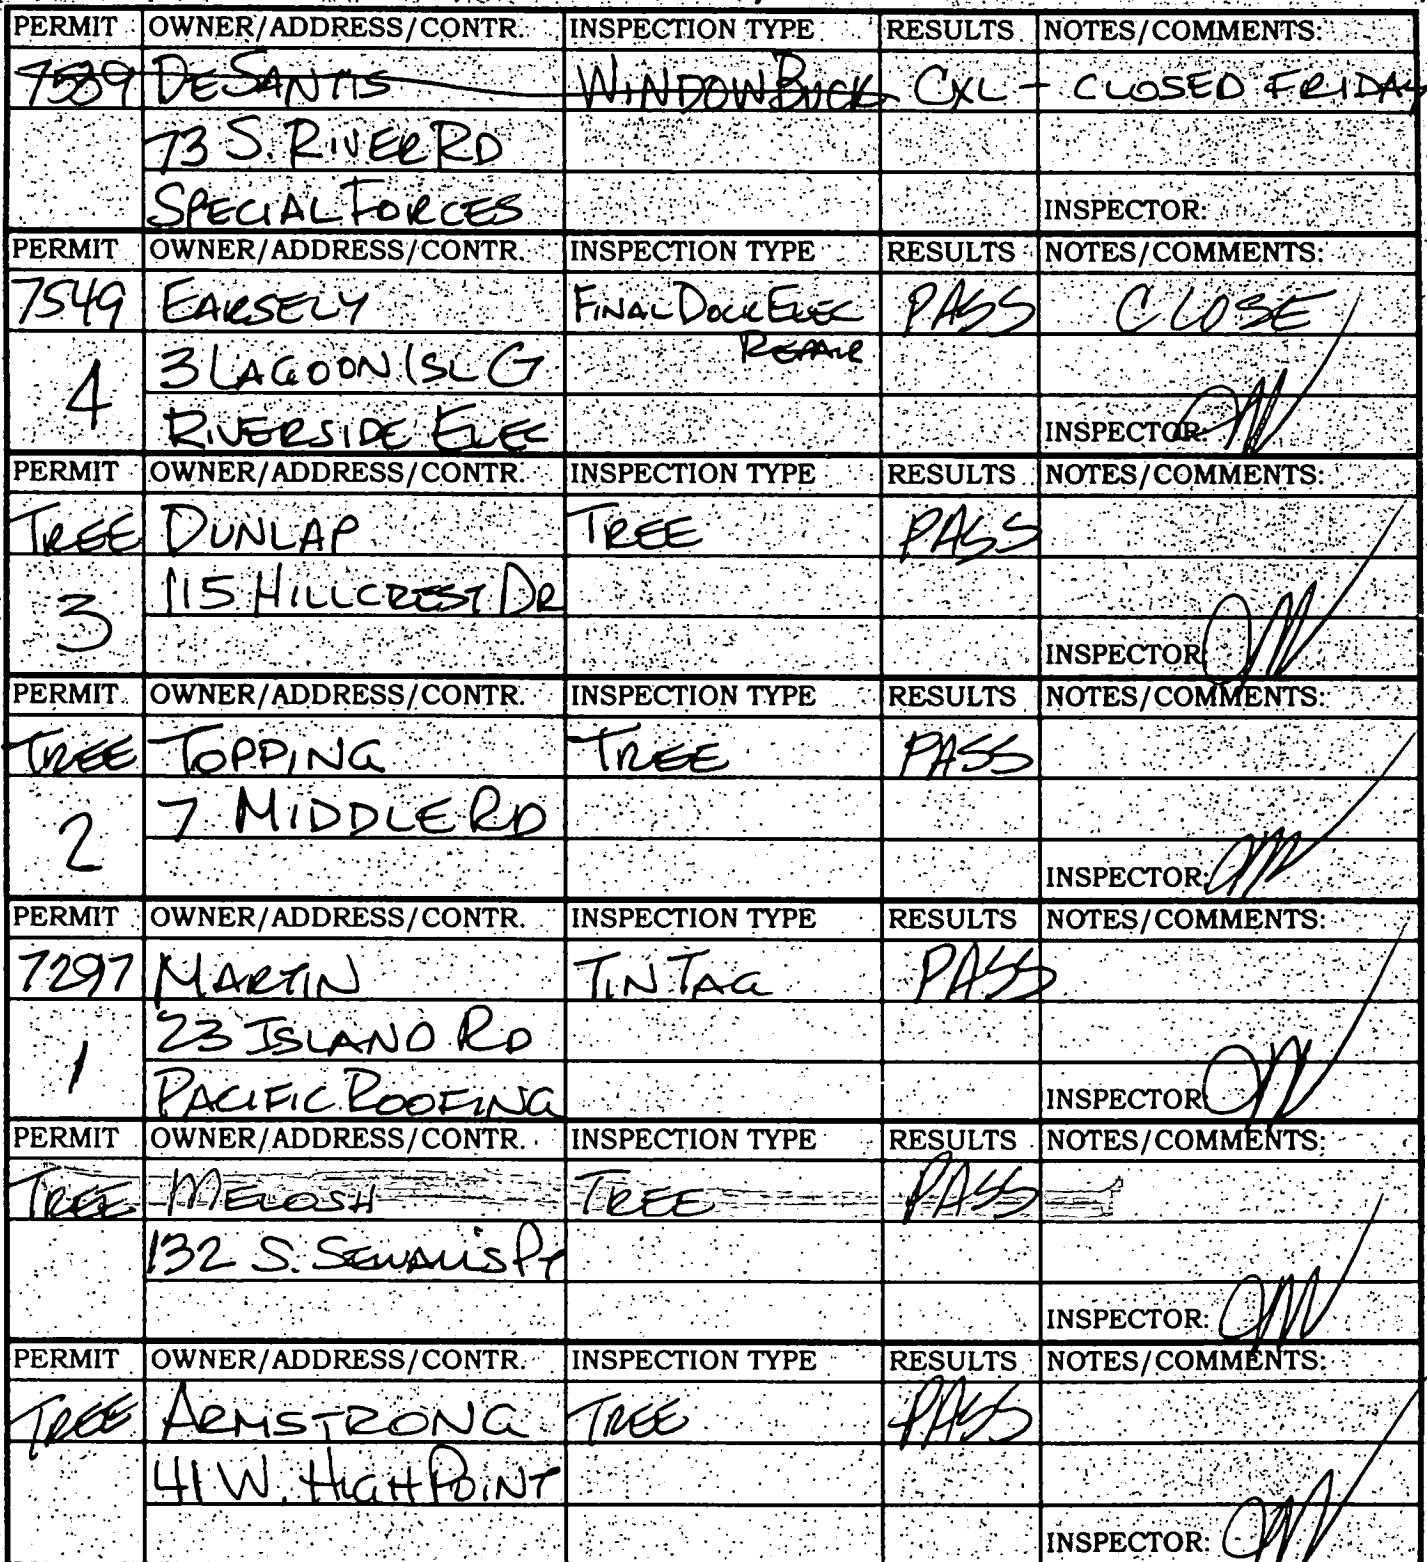 PERMIT OWNER/ADDRESS/CONTR. INSPECTION TYPE RESULTS NOTES/COMMENTS:
7539 DESANTIS WINDOW BUCK CXL - CLOSED FRIDAY
73 S. RIVER RD
SPECIAL FORCES INSPECTOR:
PERMIT OWNER/ADDRESS/CONTR. INSPECTION TYPE RESULTS NOTES/COMMENTS:
7549 EARSELY FINAL DOCK ELEC PASS CLOSE
4 3 LAGOON ISL G REPAIR
RIVERSIDE ELEC INSPECTOR:
PERMIT OWNER/ADDRESS/CONTR. INSPECTION TYPE RESULTS NOTES/COMMENTS:
TREE DUNLAP TREE PASS
3 115 HILLCREST DR
INSPECTOR
PERMIT OWNER/ADDRESS/CONTR. INSPECTION TYPE RESULTS NOTES/COMMENTS:
TREE TOPPING TREE PASS
2 7 MIDDLE RD
INSPECTOR:
PERMIT OWNER/ADDRESS/CONTR. INSPECTION TYPE RESULTS NOTES/COMMENTS:
7297 MARTIN TIN TAG PASS
1 23 ISLAND RD
PACIFIC ROOFING INSPECTOR
PERMIT OWNER/ADDRESS/CONTR. INSPECTION TYPE RESULTS NOTES/COMMENTS:
TREE MELOSH TREE PASS
132 S. SEWALL'S PT
INSPECTOR:
PERMIT OWNER/ADDRESS/CONTR. INSPECTION TYPE RESULTS NOTES/COMMENTS:
TREE ARMSTRONG TREE PASS
41 W. HIGH POINT
INSPECTOR: